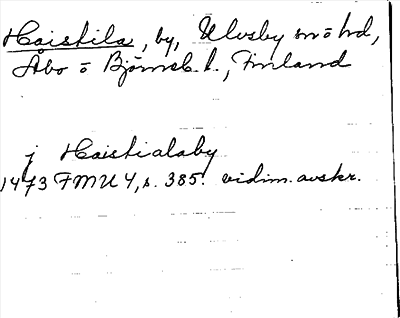 Haistila, by, Ulvsby sn o hd,
Åbo o Björneb. l., Finland
j Haistialaby
1473 FMU 4, s. 385. vidim. avskr.